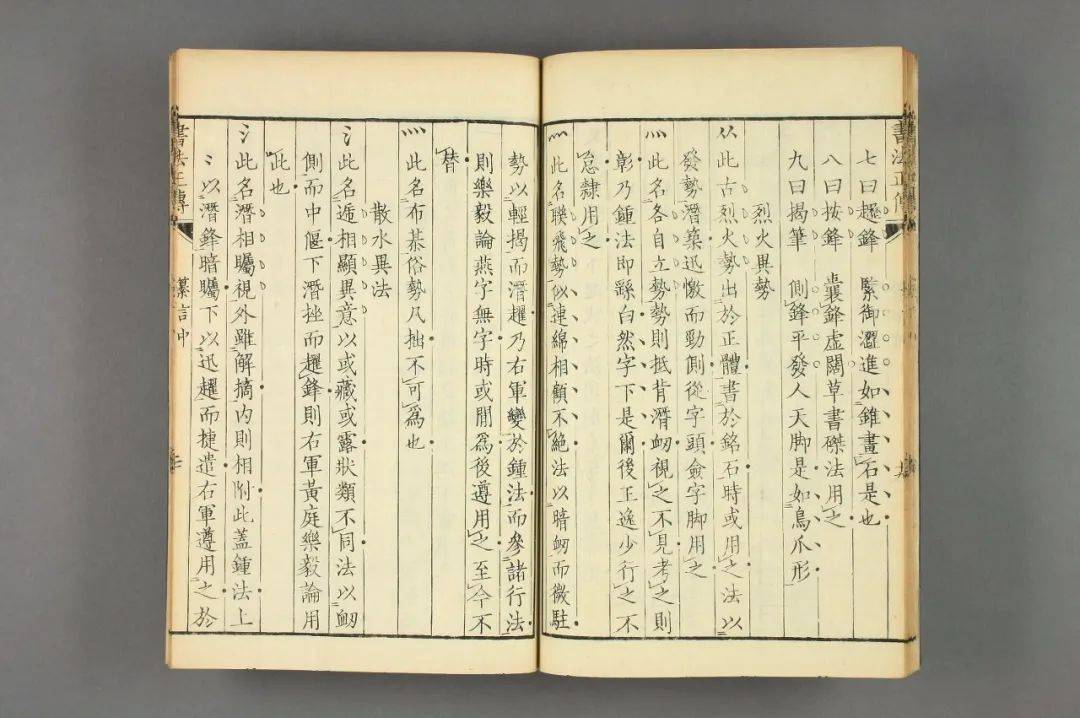 七曰趯鋒 緊御澀進如錐畫石是也
八曰按鋒 囊鋒虛闊草書磔法用之
九曰揭筆 側鋒平發人天脚是如鳥爪形
烈火異勢
灬此古烈火勢出於正體書於銘石時或用之法以
發勢潛築迅憿而勁側從字頭僉字脚用之
灬此名各自立勢勢則抵背潛衂視之不見考之則
彰乃鍾法即繇白然字下是爾後王逸少行之不
怠隸用之
灬此名聯飛勢似連綿相顧不絕法以暗衂而微駐
勢以輕揭而潛趯乃右軍變於鍾法而參諸行法
則樂毅論燕字無字時或閒爲後遵用之至今不
替
灬此名布棊俗勢凡拙不可爲也
散水異法
氵此名遞相顯異意以或藏或露狀類不同法以衂
側而中偃下潛挫而趯鋒則右軍黃庭樂毅論用
此也
氵此名潛相矚視外雖解摘內則相附此蓋鍾法上
冫以潛鋒暗矚下以迅趯而捷遣右軍遵用之於
書法正傳
纂言中